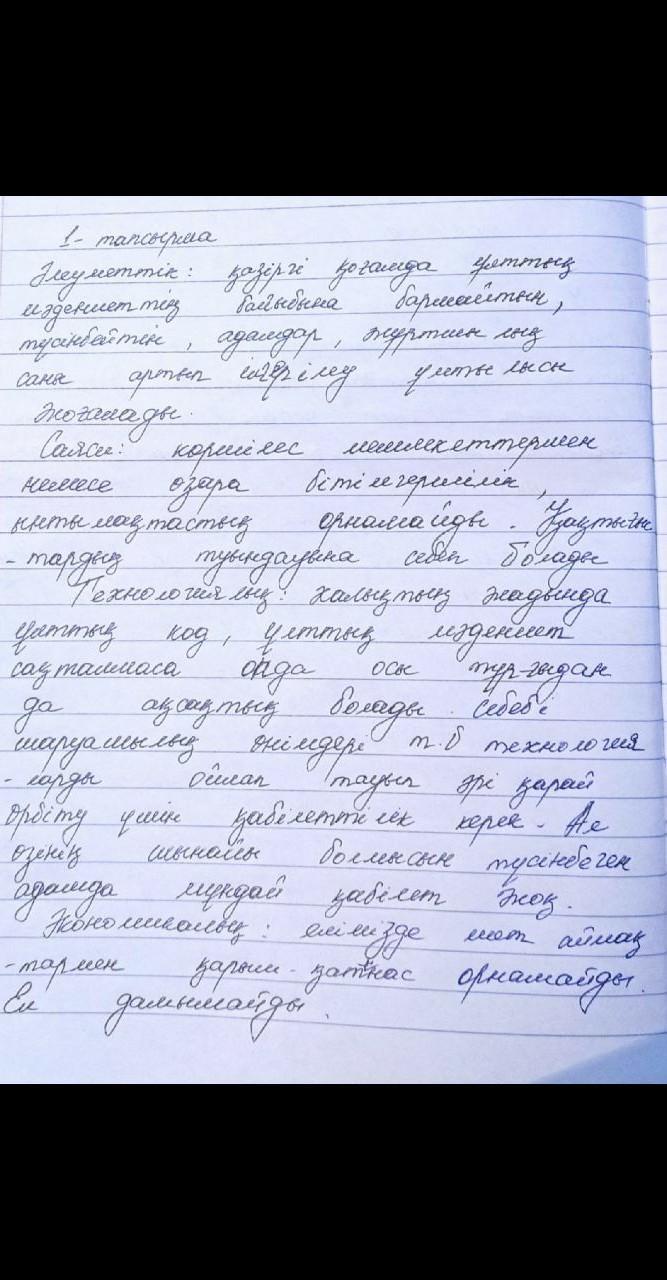 1- тапсырма
Әлеуметтік: қазіргі қоғамда ұлттық
мәдениеттің байыбына бармайтын,
түсінбейтін, адамдар, жұртшылық
саны артып ілгерілеу ұмтылысы
жоғалады.
Саяси: көршілес мемлекеттермен
немесе өзара бітімгершілік,
ынтымақтастық орнамайды. Қақтығыс
-тардың туындауына себеп болады
Технологиялық: халықтың жадында
ұлттық код, ұлттық мәдениет
сақталмаса онда осы тұрғыдан
да ақсақтық болады. Себебі
шаруашылық өнімдері т.б технология
-ларды ойлап тауып әрі қарай
өрбіту үшін қабілеттілік керек. Ал
өзінің шынайы болмысын түсінбеген
адамда мұндай қабілет жоқ.
Экономикалық: елімізде шет аймақ
-тармен қарым-қатнас орнамайды.
Ел дамымайды.